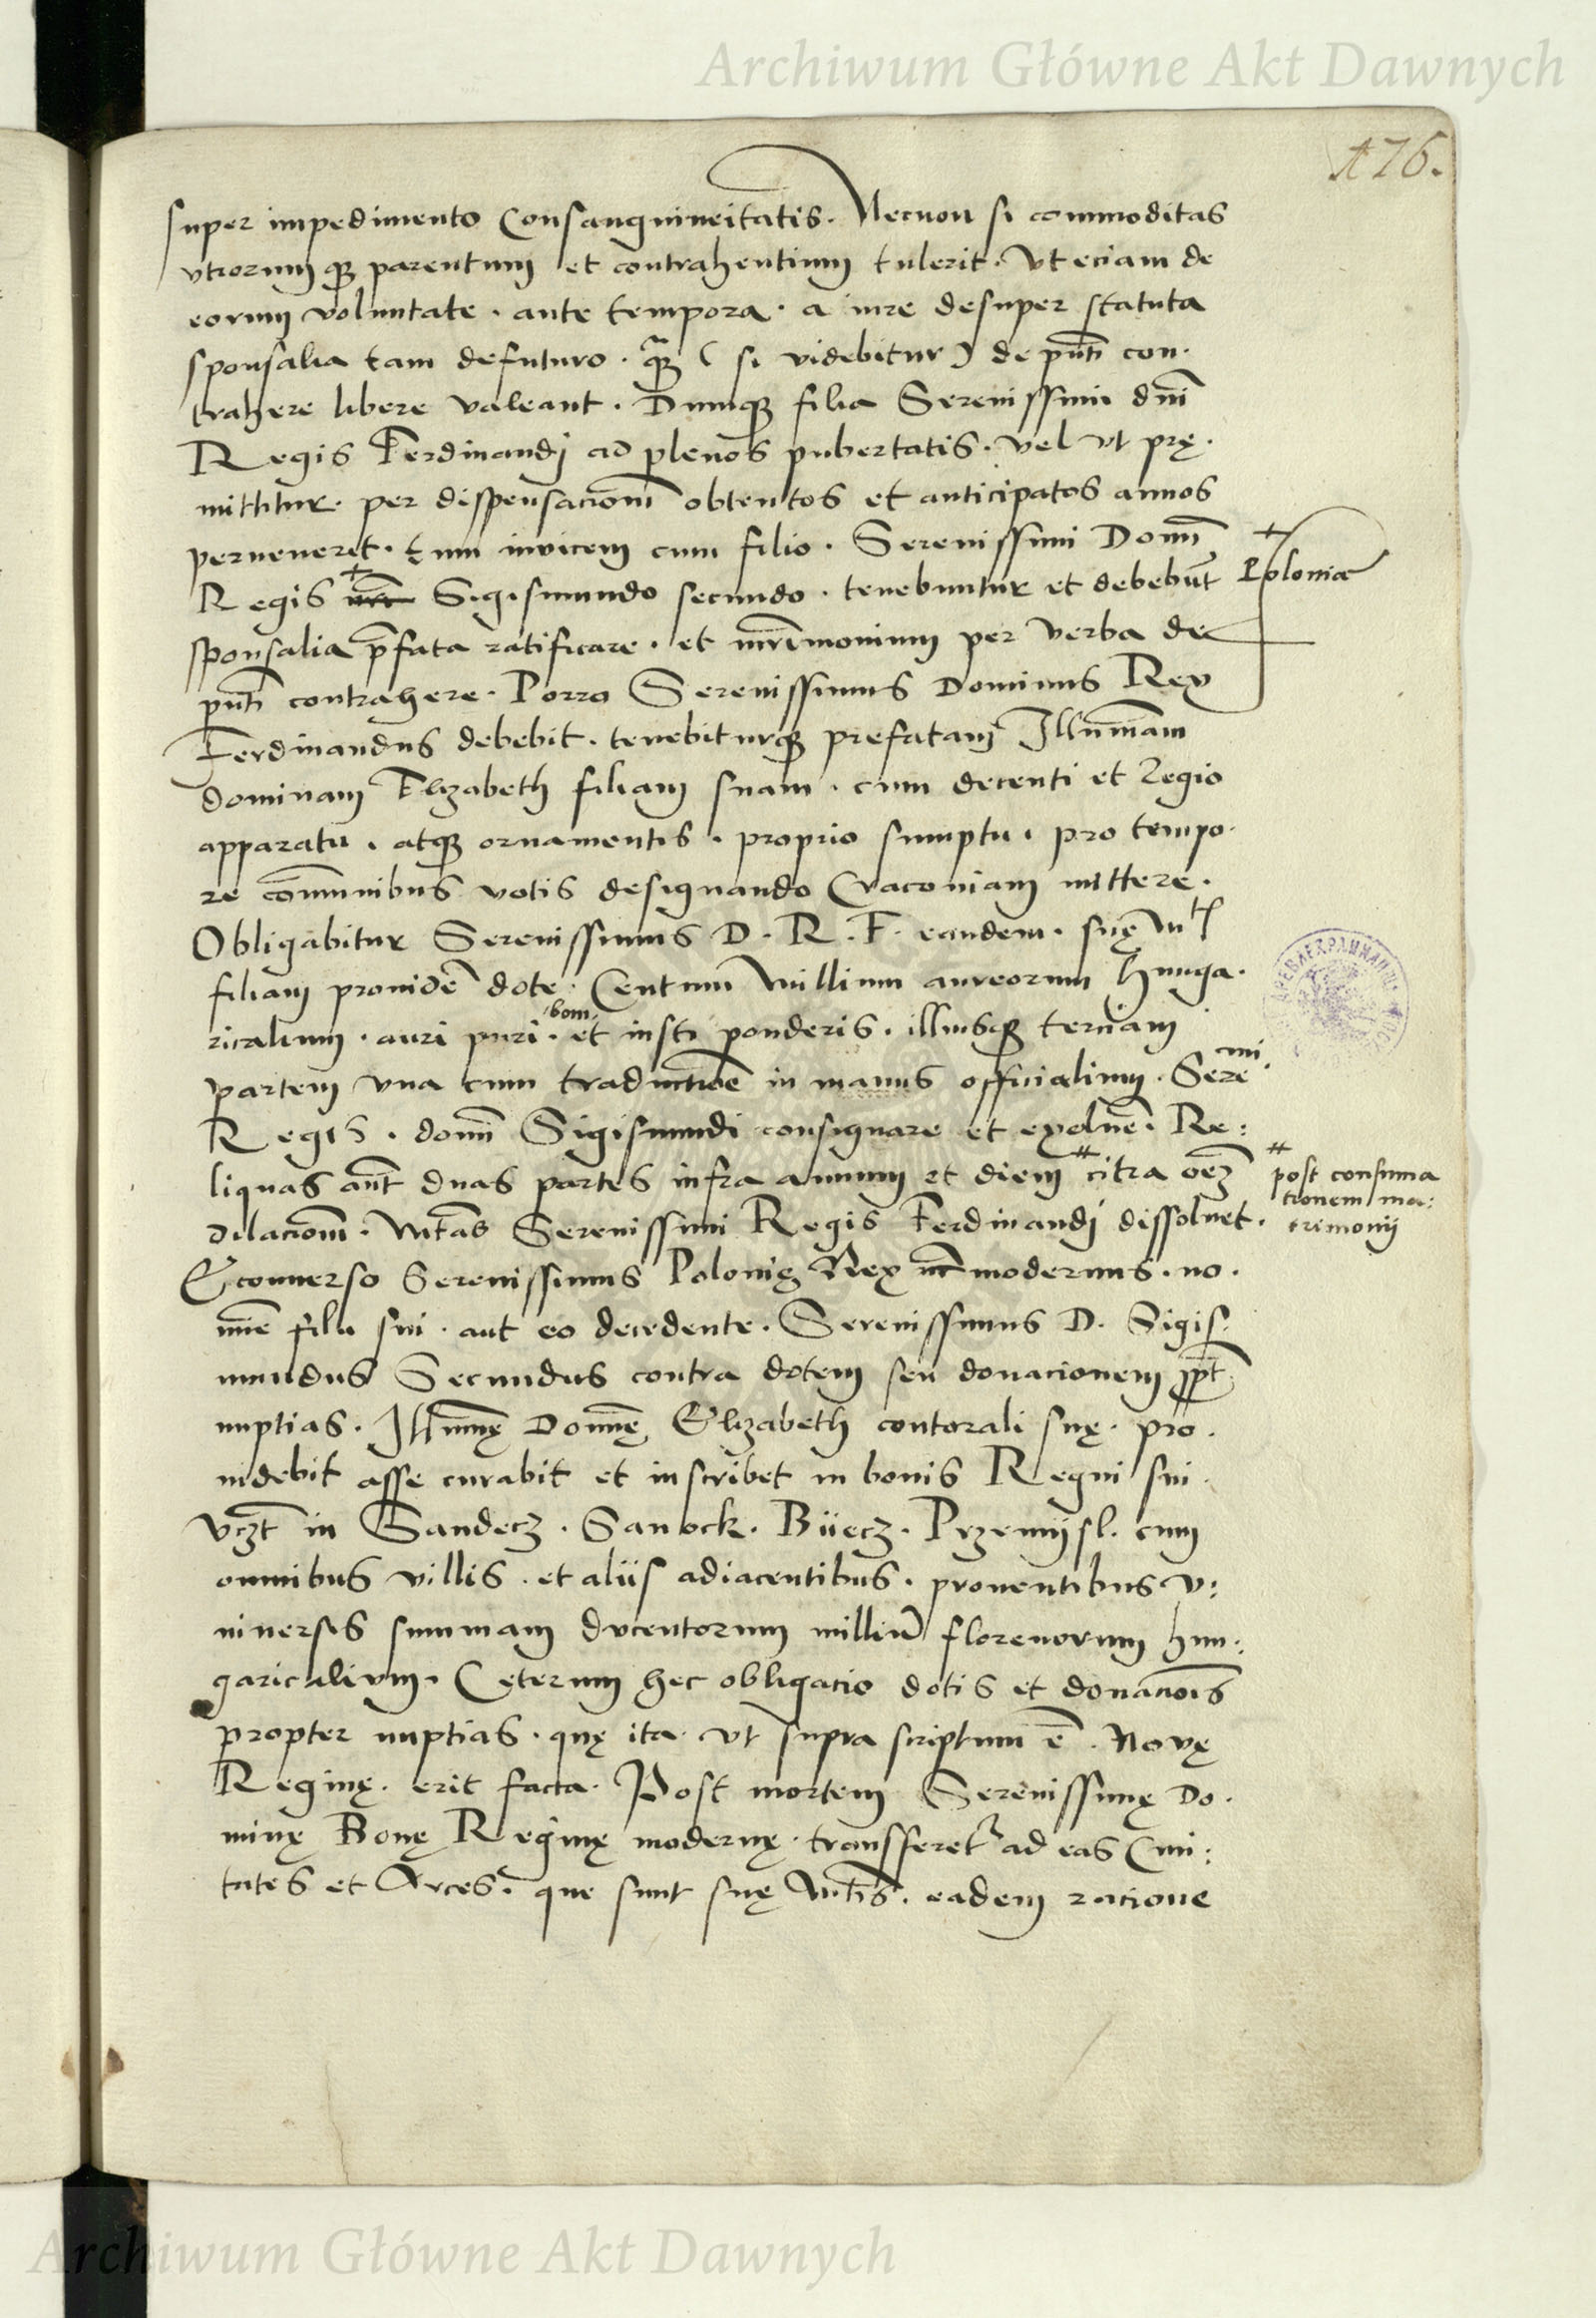 Archiwum Główne Akt Dawnych
176.
super impedimento Consanguineitatis. Necnon si commoditas
vtrorumq3 parentum et contrahentium tulerit. Vt eciam de
eorum voluntate. ante tempora. a iure desuper statuta
sponsalia tam defuturo. q̃3 (si videbitur) de pñti con.
trahere libere valeant. Dumq3 filia Serenissimi dñi
Regis Ferdinandj ad plenos pubertatis. vel vt prę.
mittitur. per dispensacionẽ obtentos et anticipatos annos
peruenerit. tum inuicem cum filio. Serenissimi Domĩ
Regis nrĩ Sigismundo secundo. tenebuntur et debebũt
+ Poloniae
sponsalia p̃fata ratificare. et mr̃imonium per verba de
pñti contrahere. Porro Serenissimus Dominus Rex
Ferdinandus debebit. tenebiturq3 prefatam Illum̃am
dominam Elizabeth filiam suam. cum decenti et Regio
apparatu. atq3 ornamentis. proprio sumptu. pro tempo.
re cõmunibus votis designando Cracouiam mittere.
Obligabitur Serenissimus D. R. F. eandem. suę Mtis
filiam prouidẽ dote. Centum Millium aureorum Hunga.
ricalium. auri puri. boni. et iusti ponderis. illiusq3 terciam
partem vna cum traductiõe in manus officialium. Sereᵐⁱ.
Regis. domĩ Sigismundi consignare et exoluẽ. Re:
liquas aũt duas partes infra annum et diem # citra oẽ3
# post consuma
tionem ma:
trimonij
dilacionẽ. Mtas Serenissimi Regis Ferdinandj dissoluet.
Econuerso Serenissimus Polonię Rex nr̃ modernus. no.
mĩe filii sui. aut eo decedente. Serenissimus D. Sigis.
mundus Secundus contra dotem seu donacionem ppt̃
nuptias. Illum̃ę Domĩę Elizabeth contorali suę. pro.
uidebit asse curabit et inscribet in bonis Regni sui.
vc3t in Sandecz. Sanock. Büecz. Przemÿsl. cum
omnibus villis. et aliis adiacentibus. prouentibus v:
niuersis summam ducentorum milliũ florenorum hun:
garicalium. Ceterum hec obligacio dotis et donaciõis
propter nuptias. quę ita. vt supra scriptum ẽ. Novę
Reginę. erit facta. Post mortem Serenissimę Do.
minę Bonę Reginę modernę. transferet᷑ ad eas Ciui:
tates et Arces. que sunt suę Mtis. eadem racione
Archiwum Główne Akt Dawnych